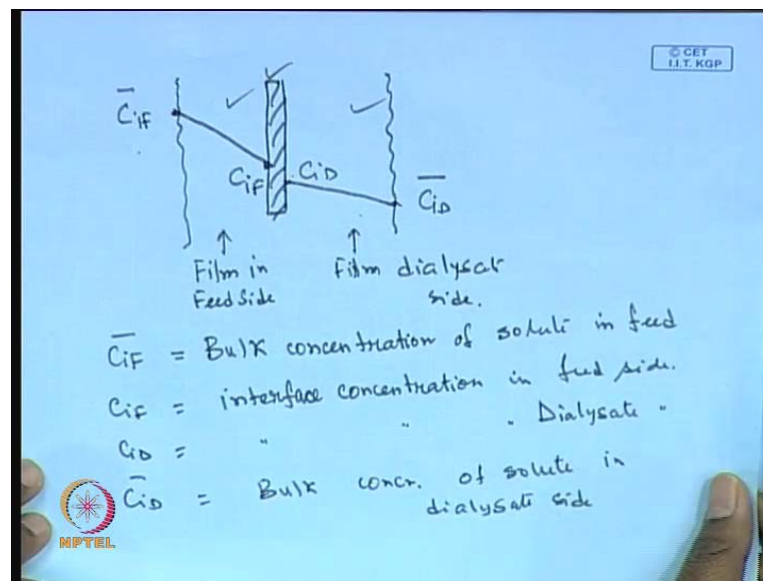 © CET
I.I.T. KGP
C̄iF
CiF CiD
C̄iD
Film in
Feed Side
Film dialysat
side.
C̄iF = Bulk concentration of solute in feed
CiF = interface concentration in feed side.
CiD = " " " Dialysate "
C̄iD = Bulk concr. of solute in
dialysate side
NPTEL